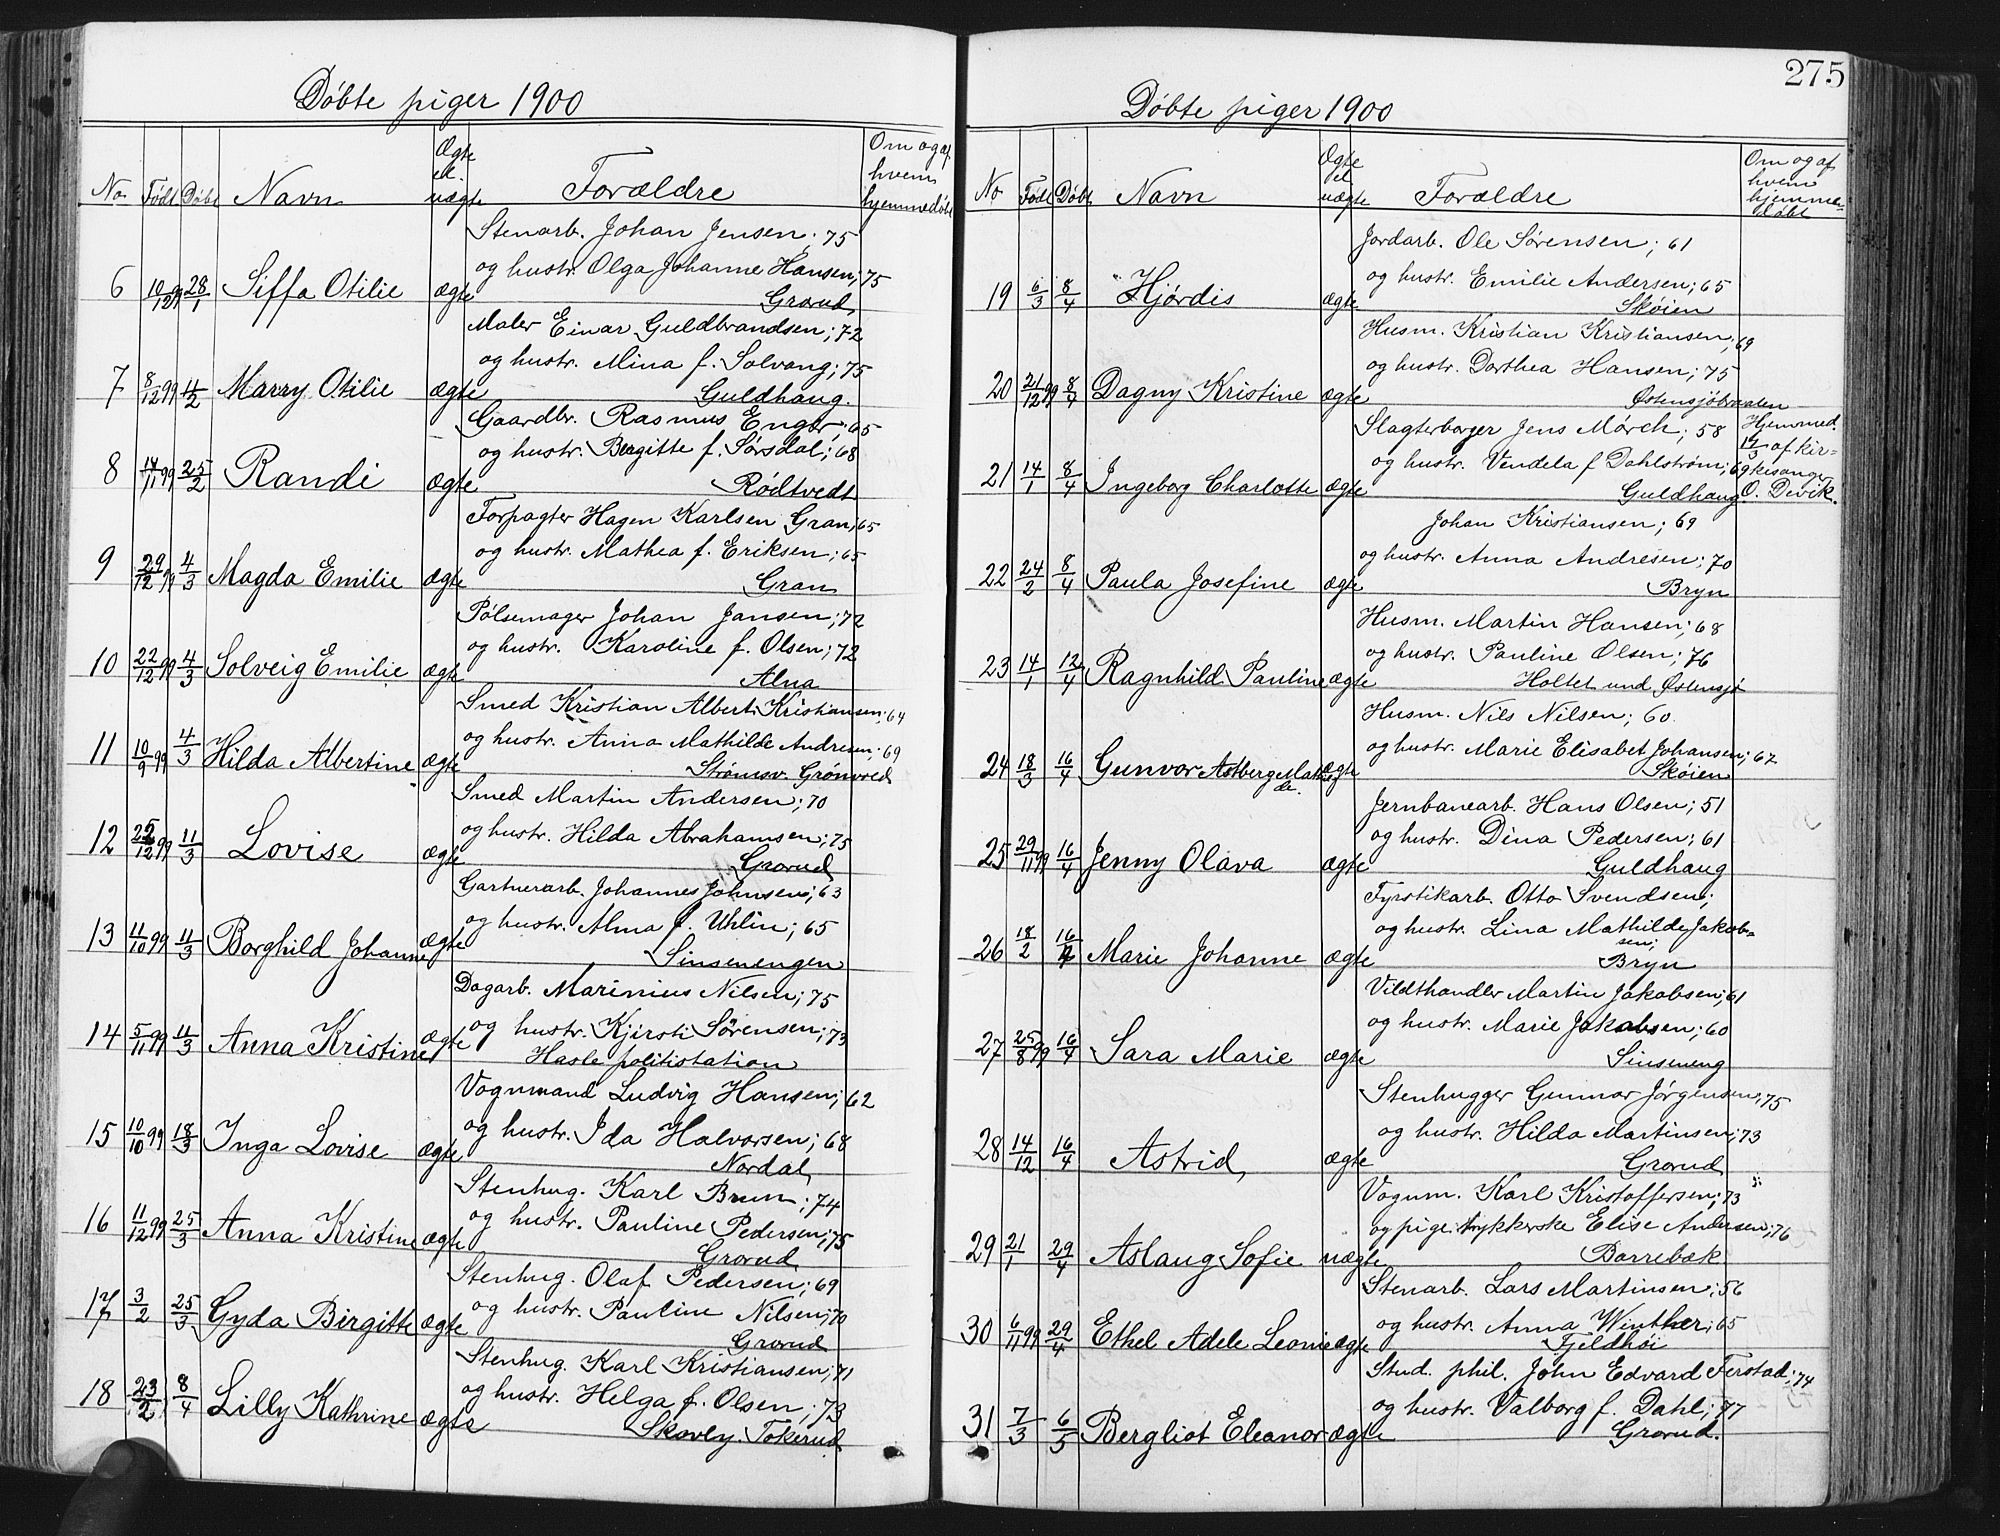 Døbte piger 1900
No Født Døbt Navn Ægte el. uægte Forældre Om og af hvem hjemmedøbt
Stenarb. Johan Jensen; 75
og hustr. Olga Johanne Hansen; 75
6 10/12 99 28/1 Siffa Otilie ægte Grorud
Maler Einar Guldbrandsen; 72
og hustr. Mina f. Solvang; 75
7 8/12 99 4/2 Marry Otilie ægte Guldhaug.
Gaardbr. Rasmus Enger; 65
og hustr. Bergitte f. Sørsdal; 68
8 14/11 99 25/2 Randi ægte Rødtvedt
Forpagter Hagen Karlsen Gran; 65
og hustr. Mathea f. Eriksen; 65
9 29/12 99 4/3 Magda Emilie ægte Gran
Pølsemager Johan Jansen; 72
og hustr. Karoline f. Olsen; 72
10 22/12 99 4/3 Solveig Emilie ægte Alna
Smed Kristian Albert Kristiansen; 64
og hustr. Anna Mathilde Andresen; 69
11 10/9 99 4/3 Hilda Albertine ægte Strømsv. Grønvold
Smed Martin Andersen; 70
og hustr. Hilda Abrahamsen; 75
12 25/12 99 11/3 Lovise ægte Grorud
Gartnerarb. Johannes Johnsen; 63
og hustr. Alma f. Uhlin; 65
13 11/10 99 11/3 Borghild Johanne ægte Sinsenengen
Dagarb. Marinius Nilsen; 75
og hustr. Kjirsti Sørensen; 73
14 5/11 99 11/3 Anna Kristine ægte Hasle politistation
Vognmand Ludvig Hansen; 62
og hustr. Ida Halvorsen; 68
15 10/10 99 18/3 Inga Lovise ægte Nordal
Stenhug. Karl Brun; 74
og hustr. Pauline Pedersen; 75
16 11/12 99 25/3 Anna Kristine ægte Grorud
Stenhug. Olaf Pedersen; 69
og hustr. Pauline Nilsen; 70
17 3/2 25/3 Gyda Birgitte ægte Grorud
Stenhug. Karl Kristiansen; 71
og hustr. Helga f. Olsen; 73
18 23/2 8/4 Lilly Kathrine ægte Skovly. Tokerud
275
Døbte piger 1900
No Født Døbt Navn Ægte el uægte Forældre Om og af hvem hjemmedøbt
Jordarb. Ole Sørensen; 61
og hustr. Emilie Andersen; 65
19 6/3 8/4 Hjørdis ægte Skøien
Husm. Kristian Kristiansen; 69
og hustr. Dorthea Hansen; 75
20 21/12 99 8/4 Dagny Kristine ægte Østensjøbraaten
Slagterborger Jens Mørch; 58 Hjemmed.
og hustr. Vendela f Dahlstrøm; 69 af kirkesanger
21 14/1 8/4 Ingeborg Charlotte ægte Guldhaug O. Devik.
Johan Kristiansen; 69
og hustr. Anna Andresen; 70
22 24/2 8/4 Paula Josefine ægte Bryn
Husm. Martin Hansen; 68
og hustr. Pauline Olsen; 76
23 14/1 12/4 Ragnhild Pauline ægte Holtet und Østensjø
Husm. Nils Nilsen; 60
og hustr. Marie Elisabet Johansen; 67
24 18/3 16/4 Gunvor Astberg Mathilde ægte Skøien
Jernbanearb. Hans Olsen; 51
og hustr. Dina Pedersen; 61
25 29/11 99 16/4 Jenny Olava ægte Guldhaug
Fyrstikarb. Otto Svendsen;
og hustr. Lina Mathilde Jakobsen;
26 18/2 16/4 Marie Johanne ægte Bryn
Vildthandler Martin Jakobsen; 61
og hustr. Marie Jakobsen; 60
27 25/8 99 16/4 Sara Marie ægte Sinseneng
Stenhugger Gunnar Jørgensen; 75
og hustr. Hilda Martinsen; 73
28 14/12 16/4 Astrid ægte Grorud
Vognm. Karl Kristoffersen; 73
og pige trykkerske Elise Andersen; 76
29 21/1 29/4 Aslaug Sofie uægte Borrebæk
Stenarb. Lars Martinsen; 56
og hustr. Anna Winther; 65
30 6/11 99 29/4 Ethel Adele Leonie ægte Fjeldhøi
Stud. phil. John Edvard Ferstad; 74
og hustr. Valborg f. Dahl; 77
31 7/3 6/5 Bergliot Eleanor ægte Grorud.